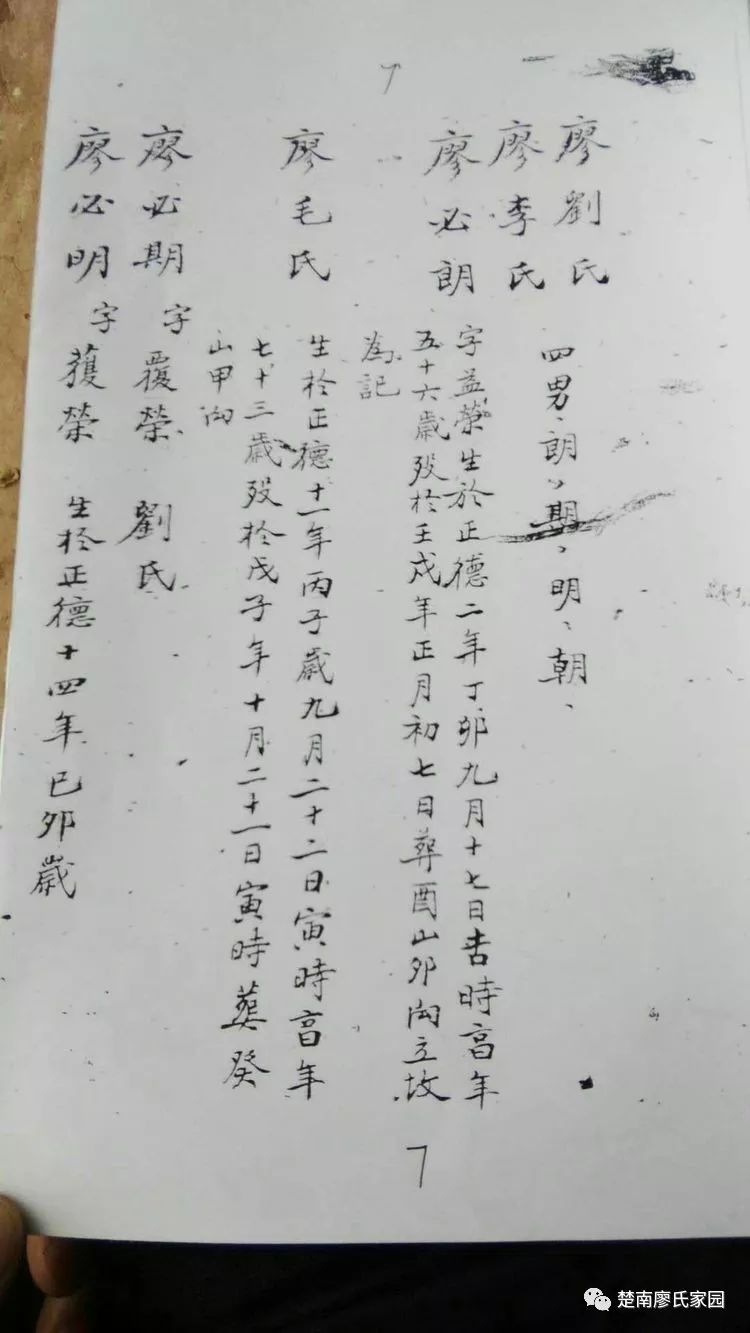 7
廖劉氏
廖李氏
四男、朗、期、明、朝、
廖必朗
字益榮生於正德二年丁卯九月十七日吉時高年
五十六歲歿於壬戌年正月初七日葬酉山卯向立坟
為記
廖毛氏
生於正德十一年丙子歲九月二十二日寅時高年
七十三歲歿於戊子年十月二十一日寅時葬癸
山甲向
廖必期 字 覆榮 劉氏
廖必明 字 獲榮 生於正德十四年已卯歲
7
楚南廖氏家园